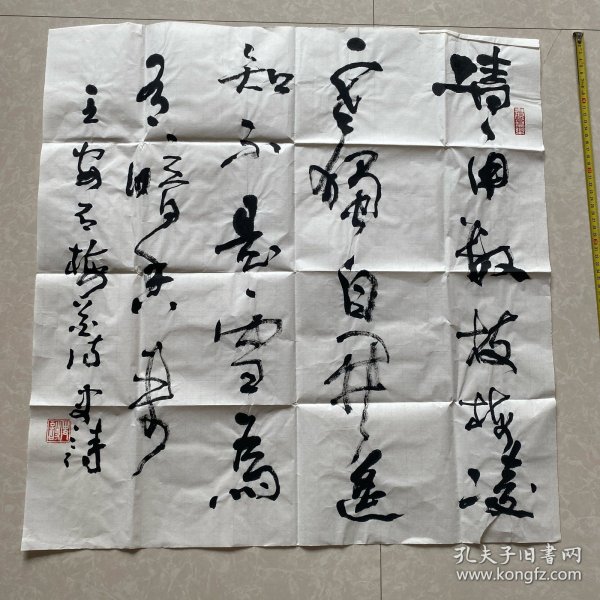 墙角数枝梅凌
寒獨自開遥
知不是雪為
有暗香来
王安石梅花诗
孔夫子旧書网
www.kongfz.com